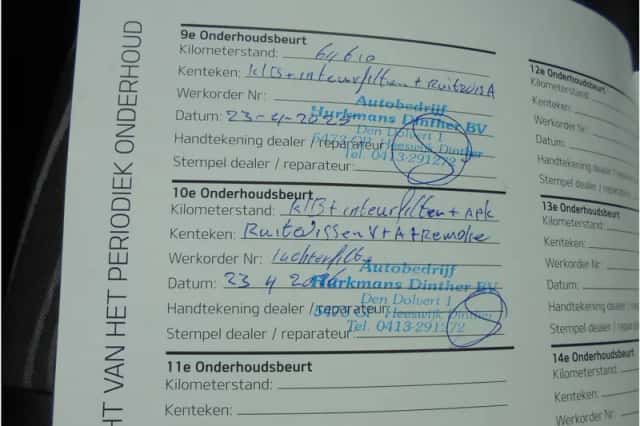 HT VAN HET PERIODIEK ONDERHOUD
9e Onderhoudsbeurt
Kilometerstand: 64610
Kenteken: KlB + interieurfilter + Ruitewis A
Werkorder Nr:
Autobedrijf
Hurkmans Dinther BV
Datum: 23-4-20
Den Dolvert 1
Handtekening dealer / reparateur:
5473 GP Heeswijk Dinther
Stempel dealer / reparateur:
Tel. 0413-291272
10e Onderhoudsbeurt
Kilometerstand: KlB + interieurfilter + Apk
Kenteken: Ruitewissen V + A + Remolie
Werkorder Nr: luchtfilter
Autobedrijf
Datum: 23 4
Hurkmans Dinther BV
Den Dolvert 1
Handtekening dealer / reparateur:
5473 GP Heeswijk Dinther
Stempel dealer / reparateur:
Tel. 0413-291272
11e Onderhoudsbeurt
Kilometerstand:
Kenteken:
12e Onderhoudsbeurt
Kilometerstand:
Kenteken:
Werkorder Nr:
Datum:
Handtekening dealer
Stempel dealer / repara
13e Onderhoudsbeurt
Kilometerstand:
Kenteken:
Werkorder Nr:
Datum:
Handtekening dealer
Stempel dealer / rep
14e Onderhoudsbeu
Kilometerstand:
Kenteken: